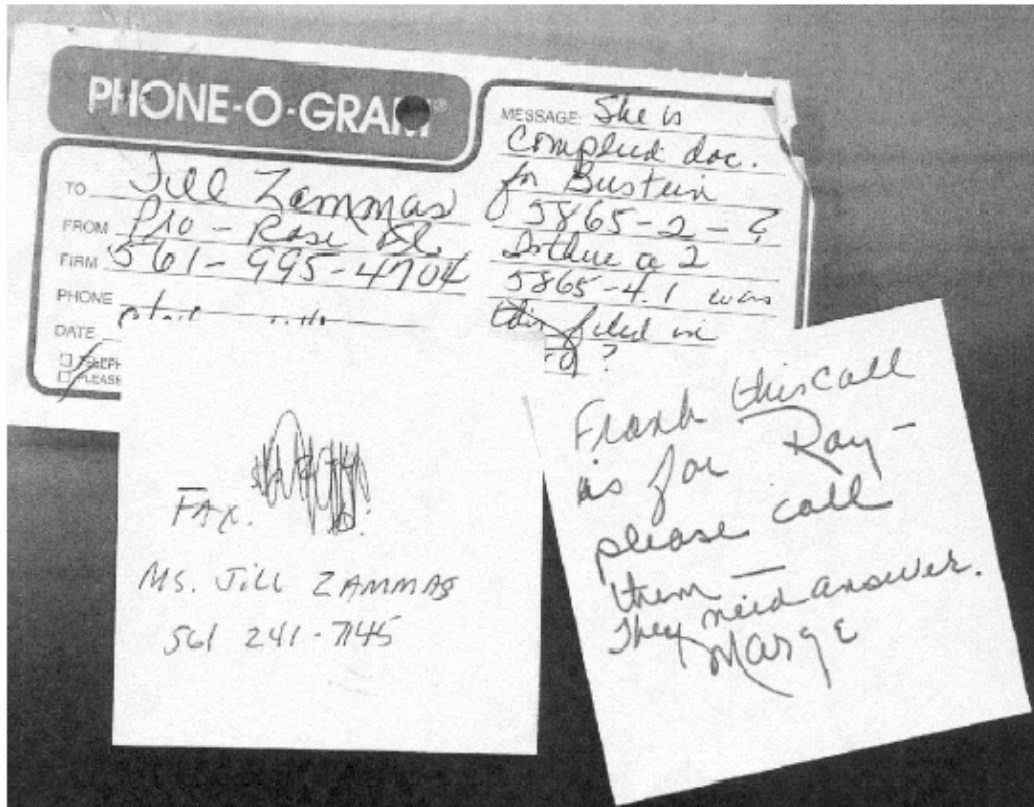 PHONE-O-GRAM®
TO Jill Zammas
FROM Pro - Rose
FIRM 561-995-4704
PHONE
DATE
TELEPH
PLEASE
MESSAGE: She is
Complied doc.
for Bustein
5865-2-?
Is there a 2
5865-4.1 was
this filed in
?
FAX.
MS. Jill ZAMMAS
561 241-7145
Frank this call
is for Ray -
please call
them —
They need answer.
Marge